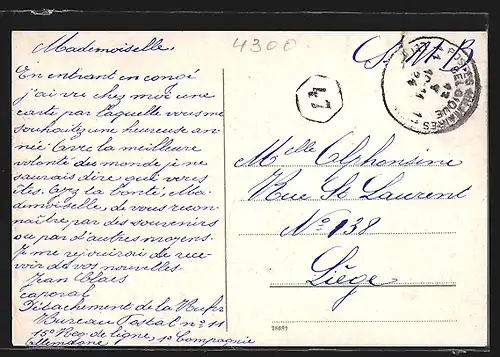 Mademoiselle,
En entrant en congé
j'ai vu chez moi une
carte par laquelle vous me
souhaitez une heureuse an-
née. Avec la meilleure
volonté des monde je ne
saurais dire qui vous
êtes. Ayz la bonté, Ma-
demoiselle, de vous recon-
naître par des souvenirs
ou par d'autres moyens.
Je me rejouirois de rece-
voir de vos nouvelles.
Jean Claes
caporal
Détachement de la Ruhr
Bureau Postal nº 11
15º Reg. de ligne, 1º Compagnie
Allemagne
4300
S. M. B
14
POSTES MILITAIRES
BELGIQUE
11
Melle Alphonsine
Rue St Laurent
Nº 138
Liège